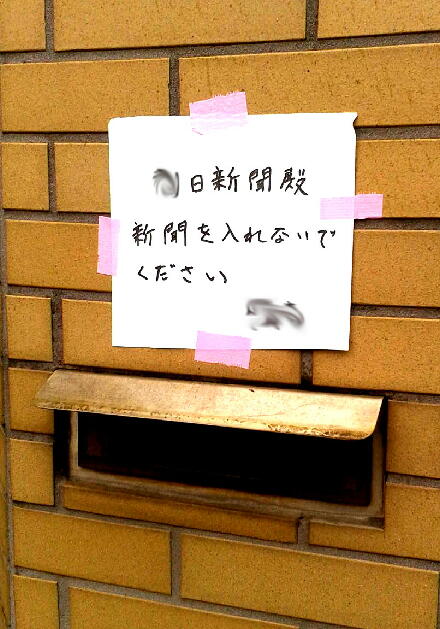 日新聞殿
新聞を入れないで
ください